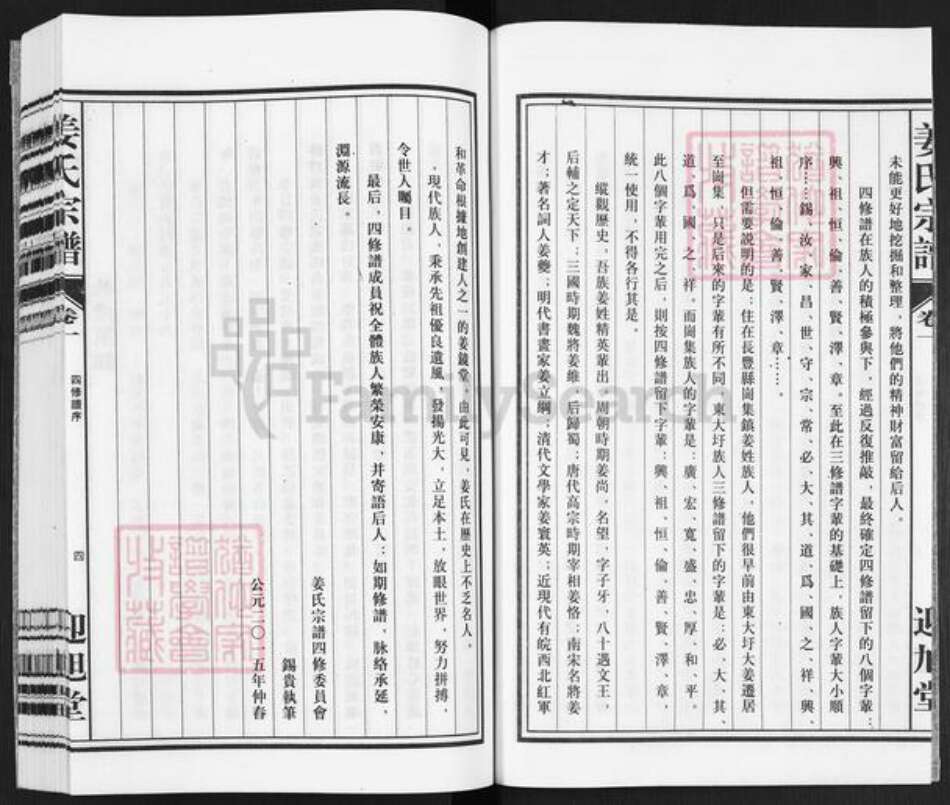 未能更好地挖掘和整理，將他們的精神財富留給后人。
四修譜在族人的積極參與下，經過反復推敲，最終確定四修譜留下的八個字輩：
興、祖、恒、倫、善、賢、澤、章。至此在三修譜字輩的基礎上，族人字輩大小順
序……錫、汝、家、昌、世、守、宗、常、必、大、其、道、爲、國、之、祥、興、
祖、恒、倫、善、賢、澤、章……
但需要説明的是：住在長豐縣崗集鎮姜姓族人，他們很早前由東大圩大姜遷居
至崗集，只是后來的字輩有所不同，東大圩族人三修譜留下的字輩是：必、大、其、
道、爲、國、之、祥。而崗集族人的字輩是：廣、宏、寬、盛、忠、厚、和、平。
此八個字輩用完之后，則按四修譜留下字輩：興、祖、恒、倫、善、賢、澤、章，
統一使用，不得各行其是。
縱觀歷史，吾族姜姓精英輩出，周朝時期姜尚，名望，字子牙，八十遇文王，
后輔之定天下；三國時期魏將姜維，后歸蜀；唐代高宗時期宰相姜恪；南宋名將姜
才；著名詞人姜夔；明代書畫家姜立綱；清代文學家姜宸英；近現代有皖西北紅軍
姜氏宗譜 卷一 迎旭堂
和革命根據地創建人之一的姜鏡堂，由此可見，姜氏在歷史上不乏名人。
現代族人，秉承先祖優良遺風，發揚光大，立足本土，放眼世界，努力拼搏，
令世人矚目。
最后，四修譜成員祝全體族人繁榮安康、并寄語后人：如期修譜，脉絡承延，
淵源流長。
姜氏宗譜四修委員會
錫貴執筆
公元二〇一五年仲春
姜氏宗譜 卷一 四修譜序 四 迎旭堂
FamilySearch